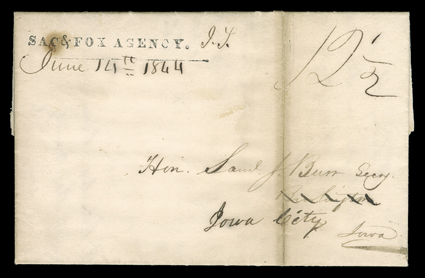 SAC & FOX AGENCY. I.T.
June 14th 1844
12 1/2
Hon. Saml J. Burr Secy.
Burlington
Iowa City
Iowa